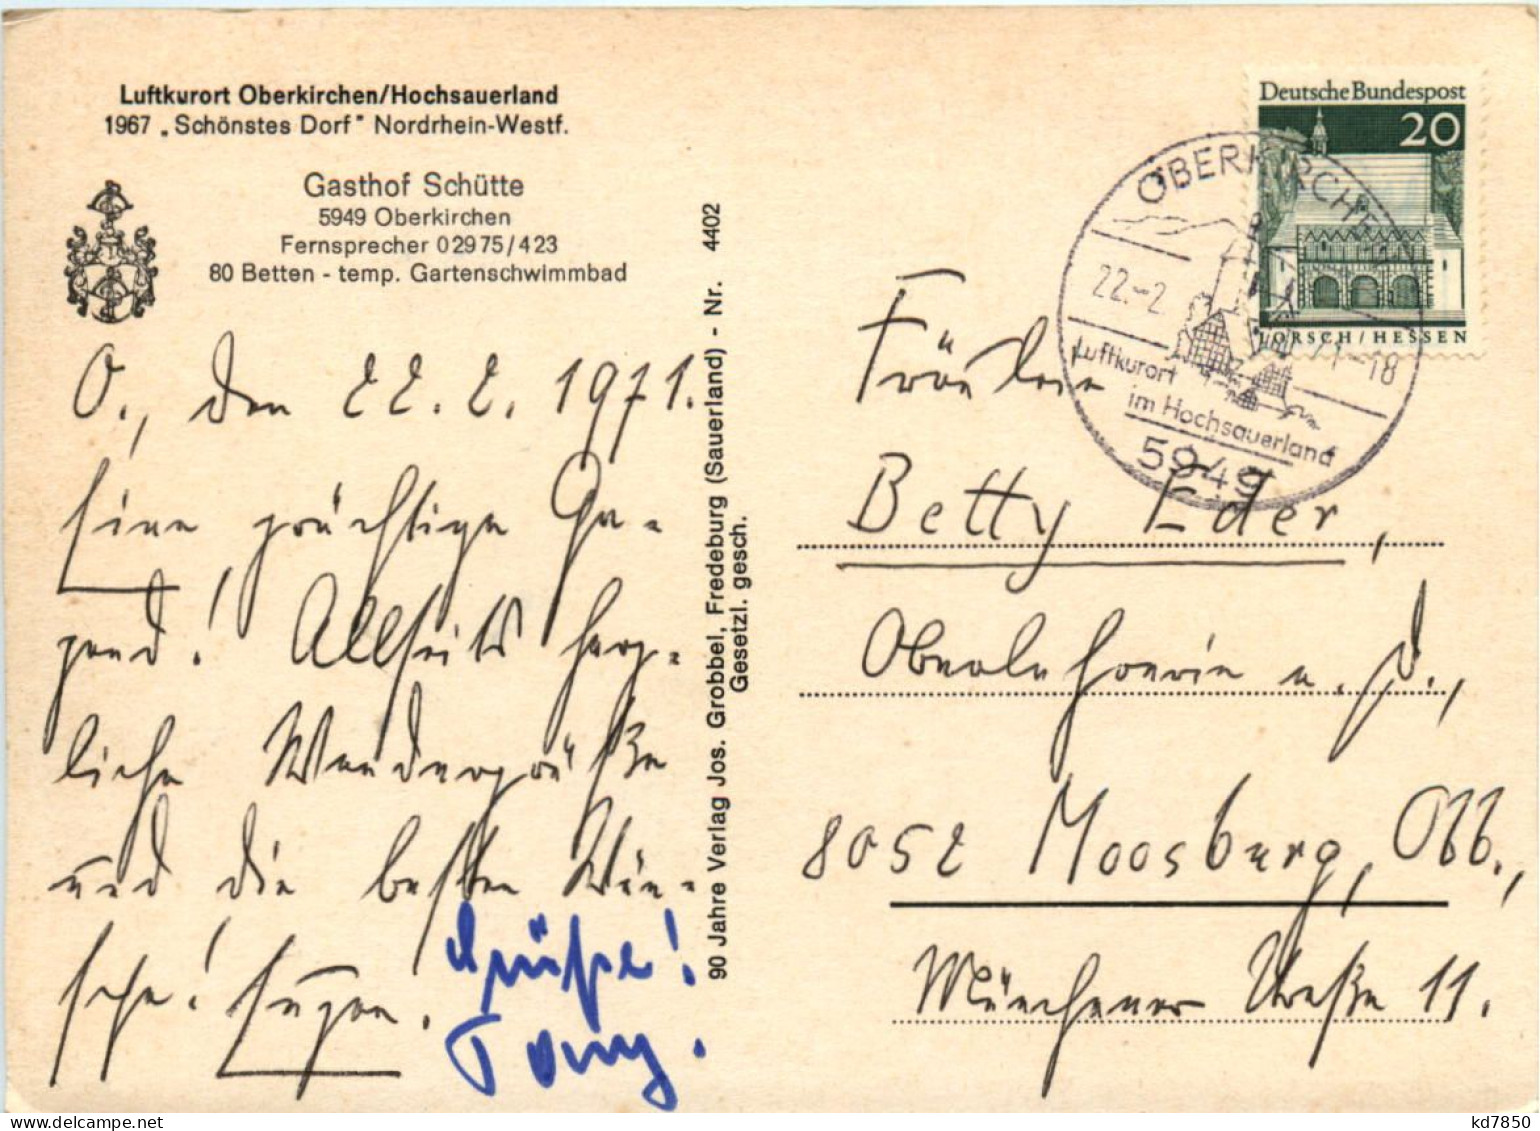 Luftkurort Oberkirchen/Hochsauerland
1967 „Schönstes Dorf" Nordrhein-Westf.
Gasthof Schütte
5949 Oberkirchen
Fernsprecher 02975/423
80 Betten - temp. Gartenschwimmbad
O., den 22. 2. 1971.
Eine prächtige Ge-
gend! Allseits herz-
liche Wandergrüße
und die besten Wün-
sche! Eugen.
Grüße!
Tony.
90 Jahre Verlag Jos. Grobbel, Fredeburg (Sauerland) - Nr. 4402
Gesetzl. gesch.
Deutsche Bundespost
20
LORSCH/HESSEN
OBERKIRCHEN
22.-2.71-18
Luftkurort
im Hochsauerland
5949
Fräulein
Betty Eder,
Oberlehrerin a. D.,
8052 Moosburg, Obb.,
Münchener Straße 11.
kd7850